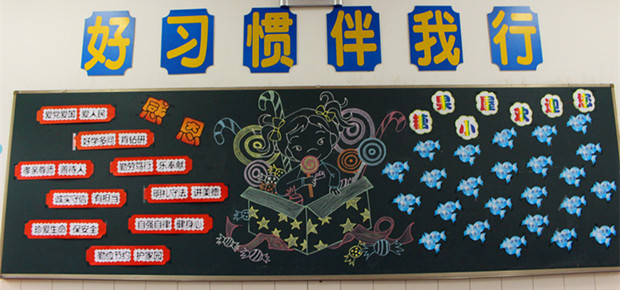 好习惯伴我行
感恩
爱党爱国 爱人民
好学多问 肯钻研
孝亲尊师 善待人
勤劳笃行 乐奉献
诚实守信 有担当
明礼守法 讲美德
珍爱生命 保安全
自强自律 健身心
勤俭节约 护家园
糖果小屋欢迎您